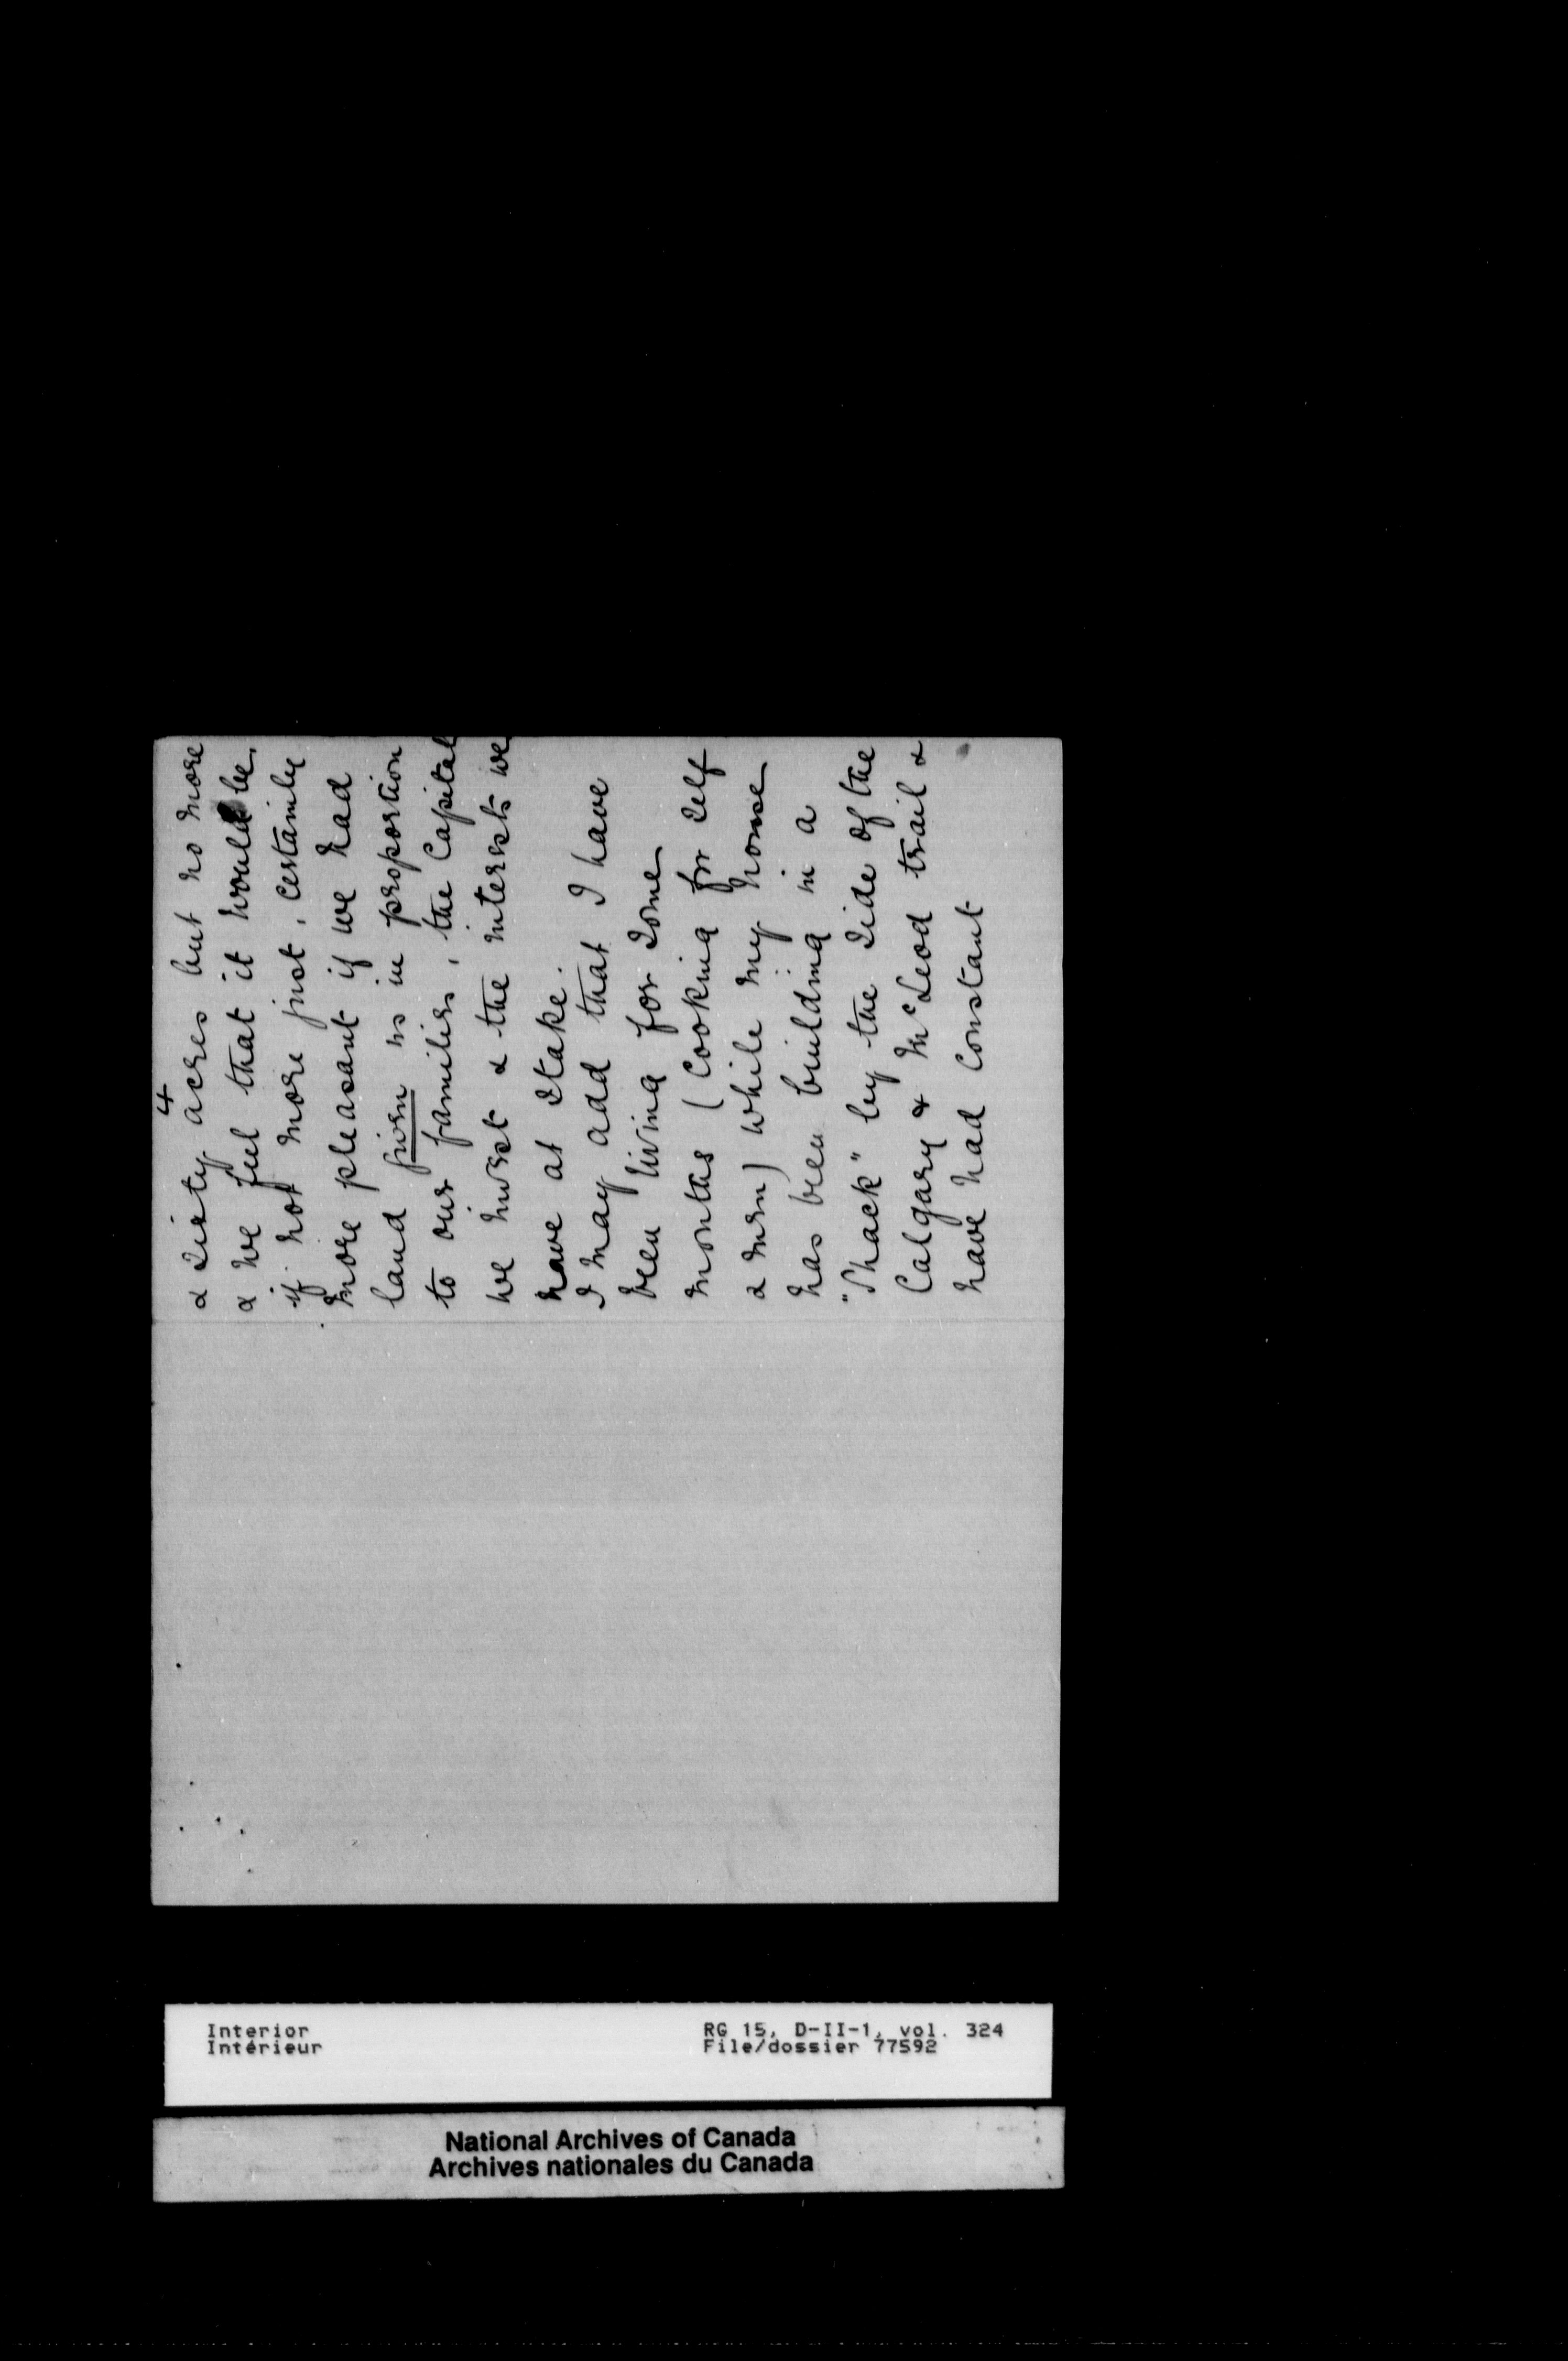 4
& sixty acres but no more
& we feel that it would be,
if not more just, certainly
more pleasant if we had
land given us in proportion
to our families, the Capital
we invest & the interests we
have at stake.
I may add that I have
been living for some
months (Cooking for self
& men) while my house
has been building in a
"Shack" by the side of the
Calgary & McLeod trail &
have had Constant
Interior
Intérieur
RG 15, D-II-1, vol. 324
File/dossier 77592
National Archives of Canada
Archives nationales du Canada